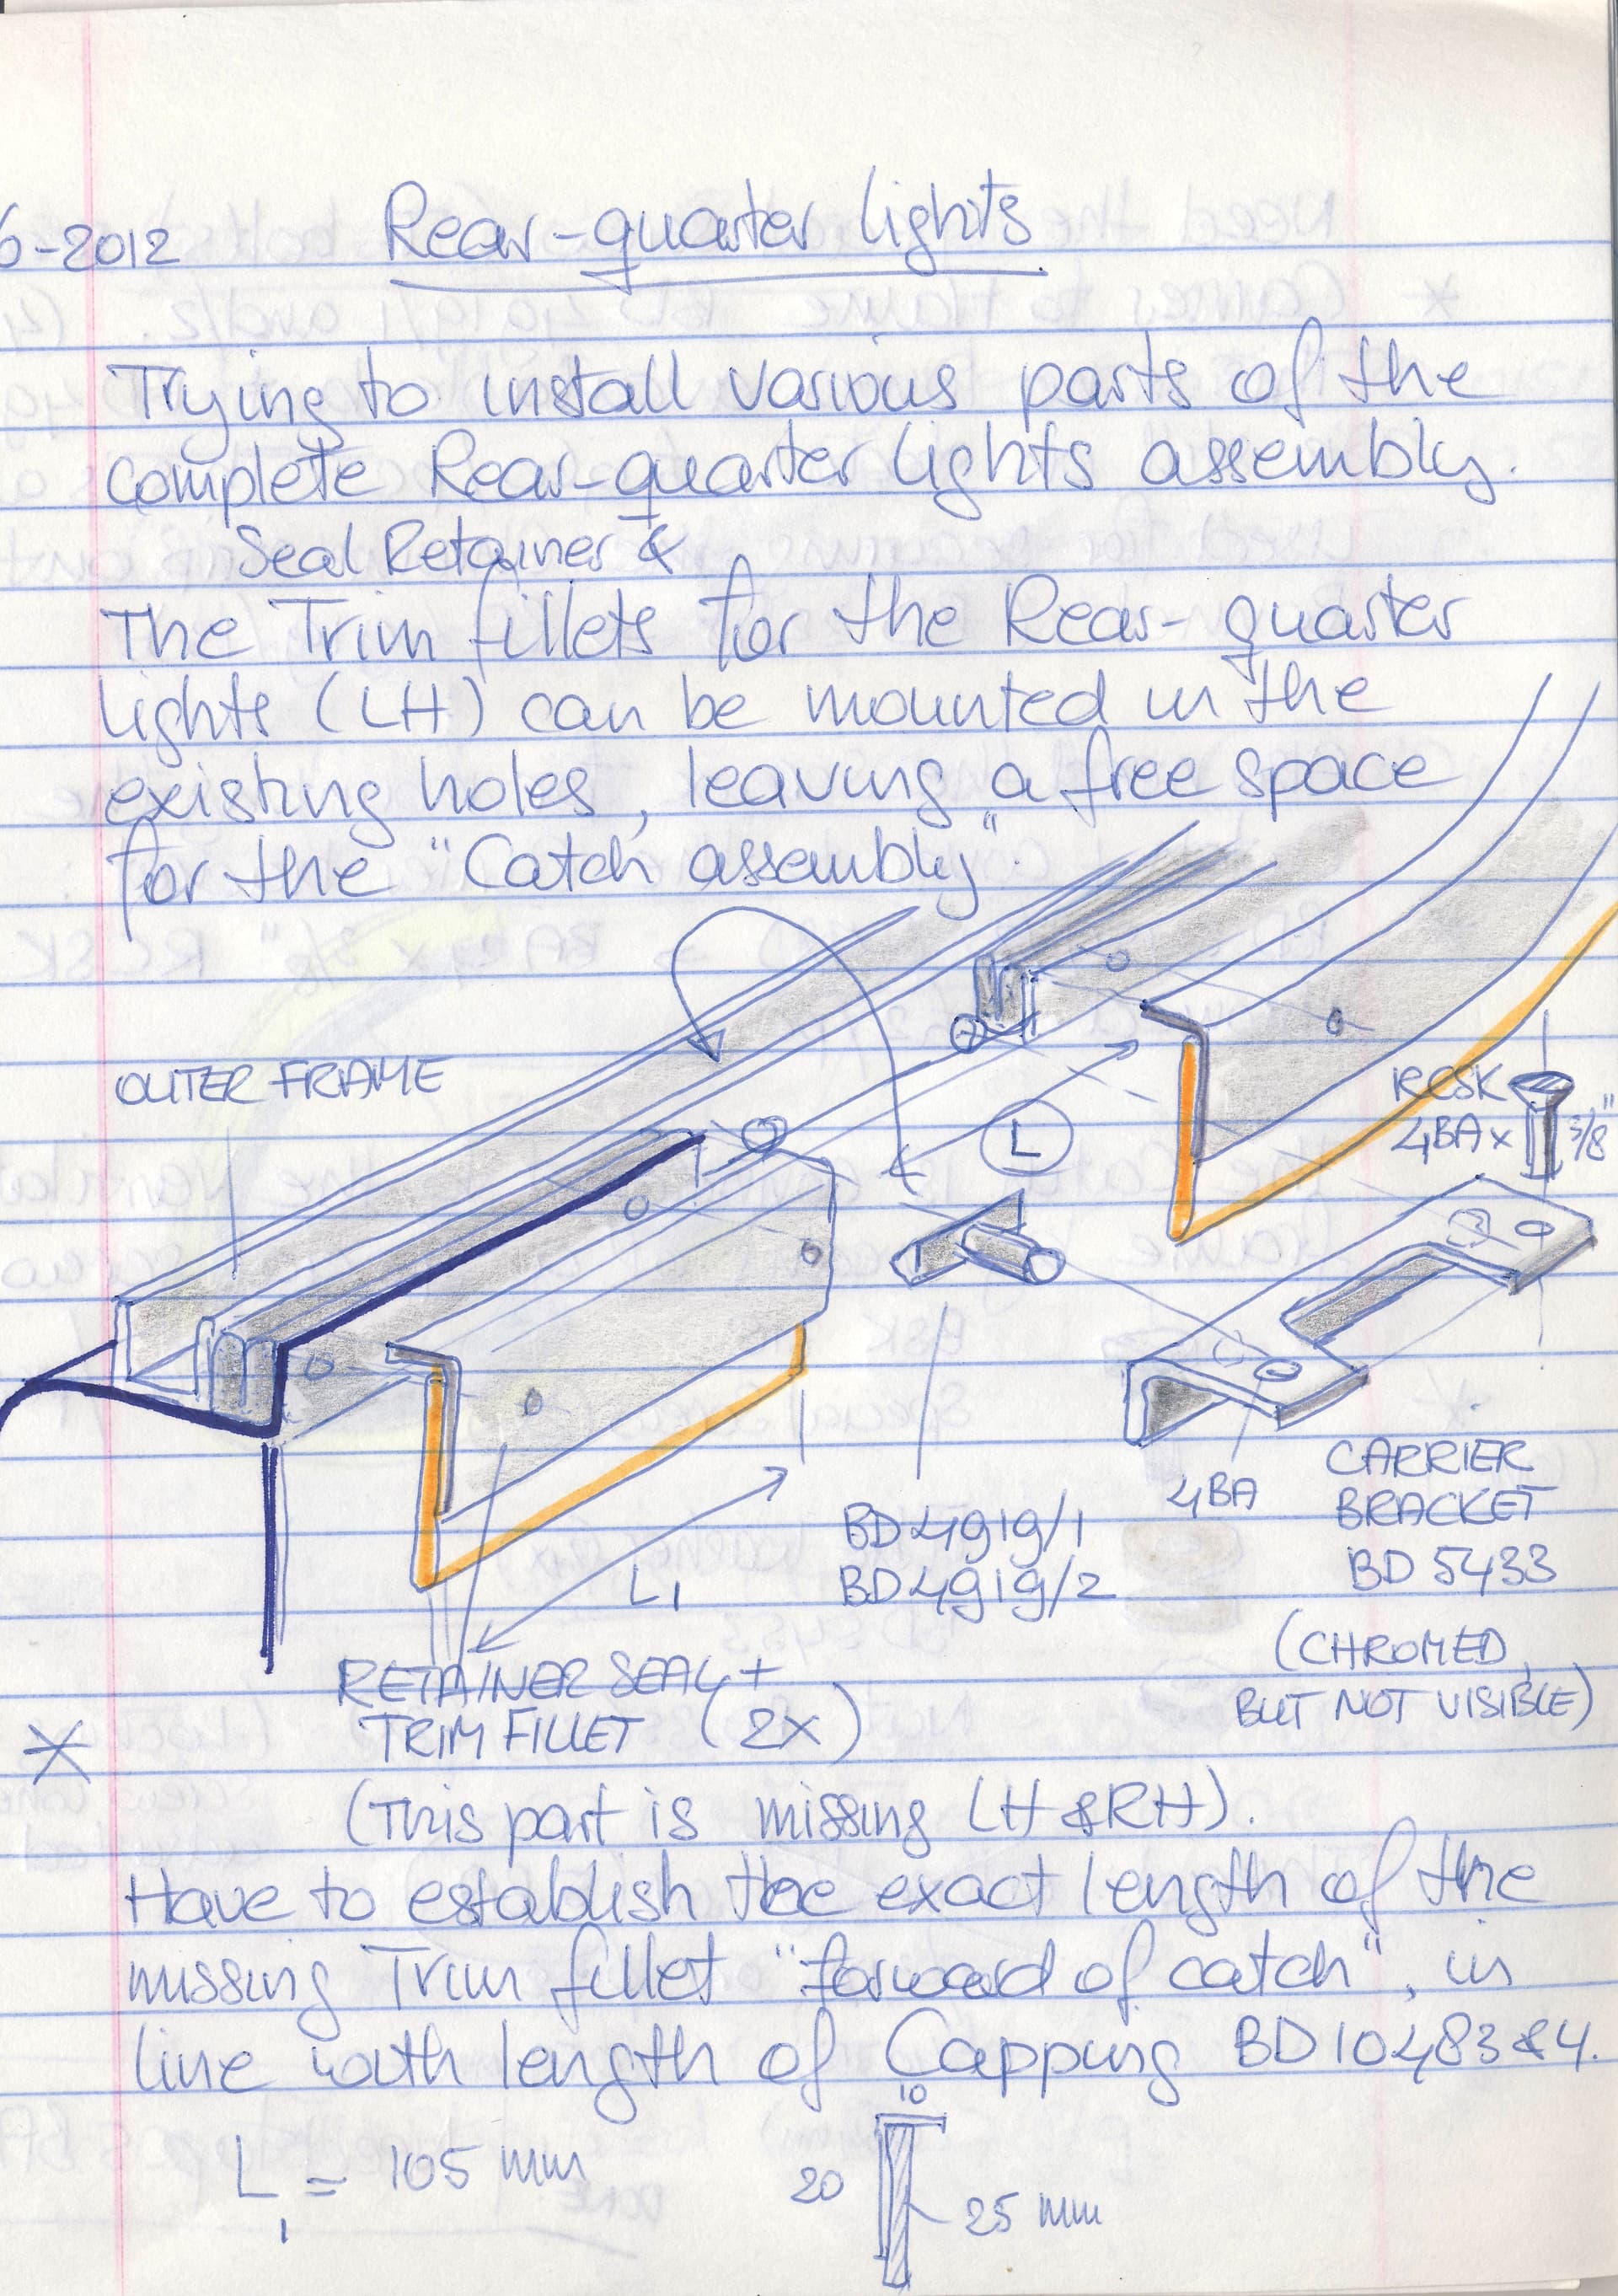 6-2012 Rear-quarter lights
Trying to install various parts of the
complete Rear-quarter lights assembly.
Seal Retainer &
The Trim fillets for the Rear-quarter
lights (LH) can be mounted in the
existing holes, leaving a free space
for the "Catch assembly".
OUTER FRAME
L
RCSK
4BA x 3/8"
4BA
CARRIER
BRACKET
BD 5433
(CHROMED,
BUT NOT VISIBLE)
BD 4919/1
BD 4919/2
L1
RETAINER SEAL +
TRIM FILLET (2x)
(This part is missing LH & RH).
Have to establish the exact length of the
missing Trim fillet "forward of catch", in
line with length of Capping BD 10483 & 4.
L1 = 105 mm
10
20
25 mm